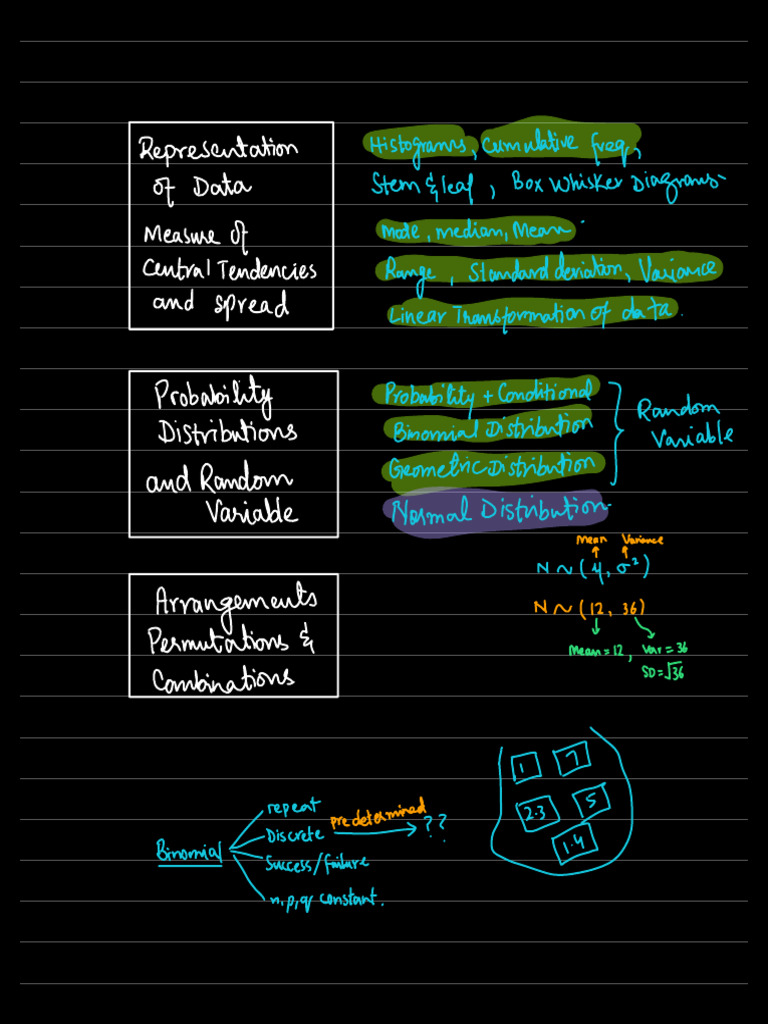 Representation
of Data
Measure of
Central Tendencies
and spread
Histograms, Cumulative freq,
Stem & leaf, Box Whisker Diagrams
mode, median, Mean.
Range, Standard deviation, Variance
Linear Transformation of data.
Probability
Distributions
and Random
Variable
Probability + Conditional
Binomial Distribution
Geometric Distribution
Normal Distribution
Random
Variable
Mean Variance
N ~ (μ, σ²)
N ~ (12, 36)
Mean = 12, Var = 36
SD = √36
Arrangements
Permutations &
Combinations
Binomial
repeat
Discrete predetermined → ??
Success/failure
n, p, q constant.
1 7
2.3 5
1.4